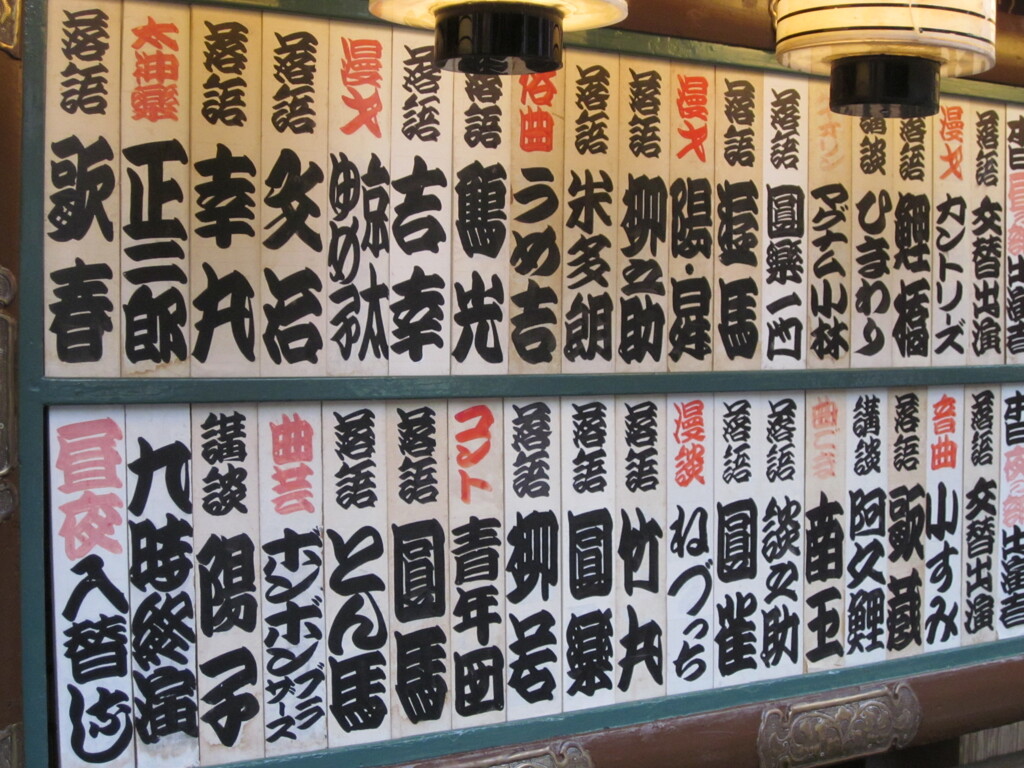 本日昼夜出演者
落語 交替出演
漫才 カントリーズ
落語 鯉橋
講談 ひまわり
マグナム小林
落語 圓樂一門
落語 遊馬
漫才 陽・昇
落語 柳之助
落語 米多朗
俗曲 うめ吉
落語 鶴光
落語 吉幸
漫才 京太 ゆめ子
落語 文治
落語 幸丸
太神樂 正二郎
落語 歌春
落語 交替出演
音曲 小すみ
落語 歌蔵
講談 阿久鯉
曲ごま 南玉
落語 談之助
落語 圓雀
漫談 ねづっち
落語 竹丸
落語 圓樂
落語 柳若
コント 青年団
落語 圓馬
落語 とん馬
曲芸 ボンボンブラザーズ
講談 陽子
九時終演
昼夜入替なし